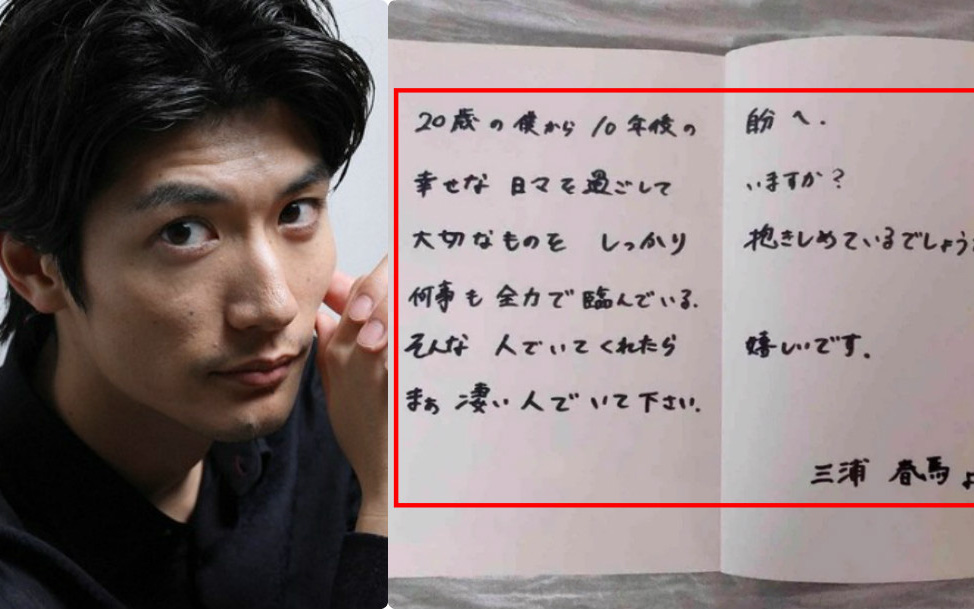 20歳の僕から10年後の自分へ.
幸せな日々を過ごしていますか?
大切なものをしっかり抱きしめているでしょう
何事も全力で臨んでいる.
そんな人でいてくれたら嬉しいです.
まぁ凄い人でいて下さい.
三浦春馬